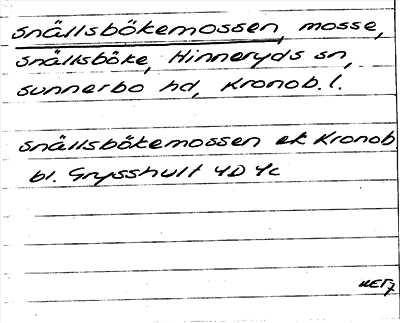 Snällsbökemossen, mosse,
Snällsböke, Hinneryds sn,
Sunnerbo hd, Kronob. l.
Snällsbökemossen ek Kronob
bl. Grysshult 4D 4c